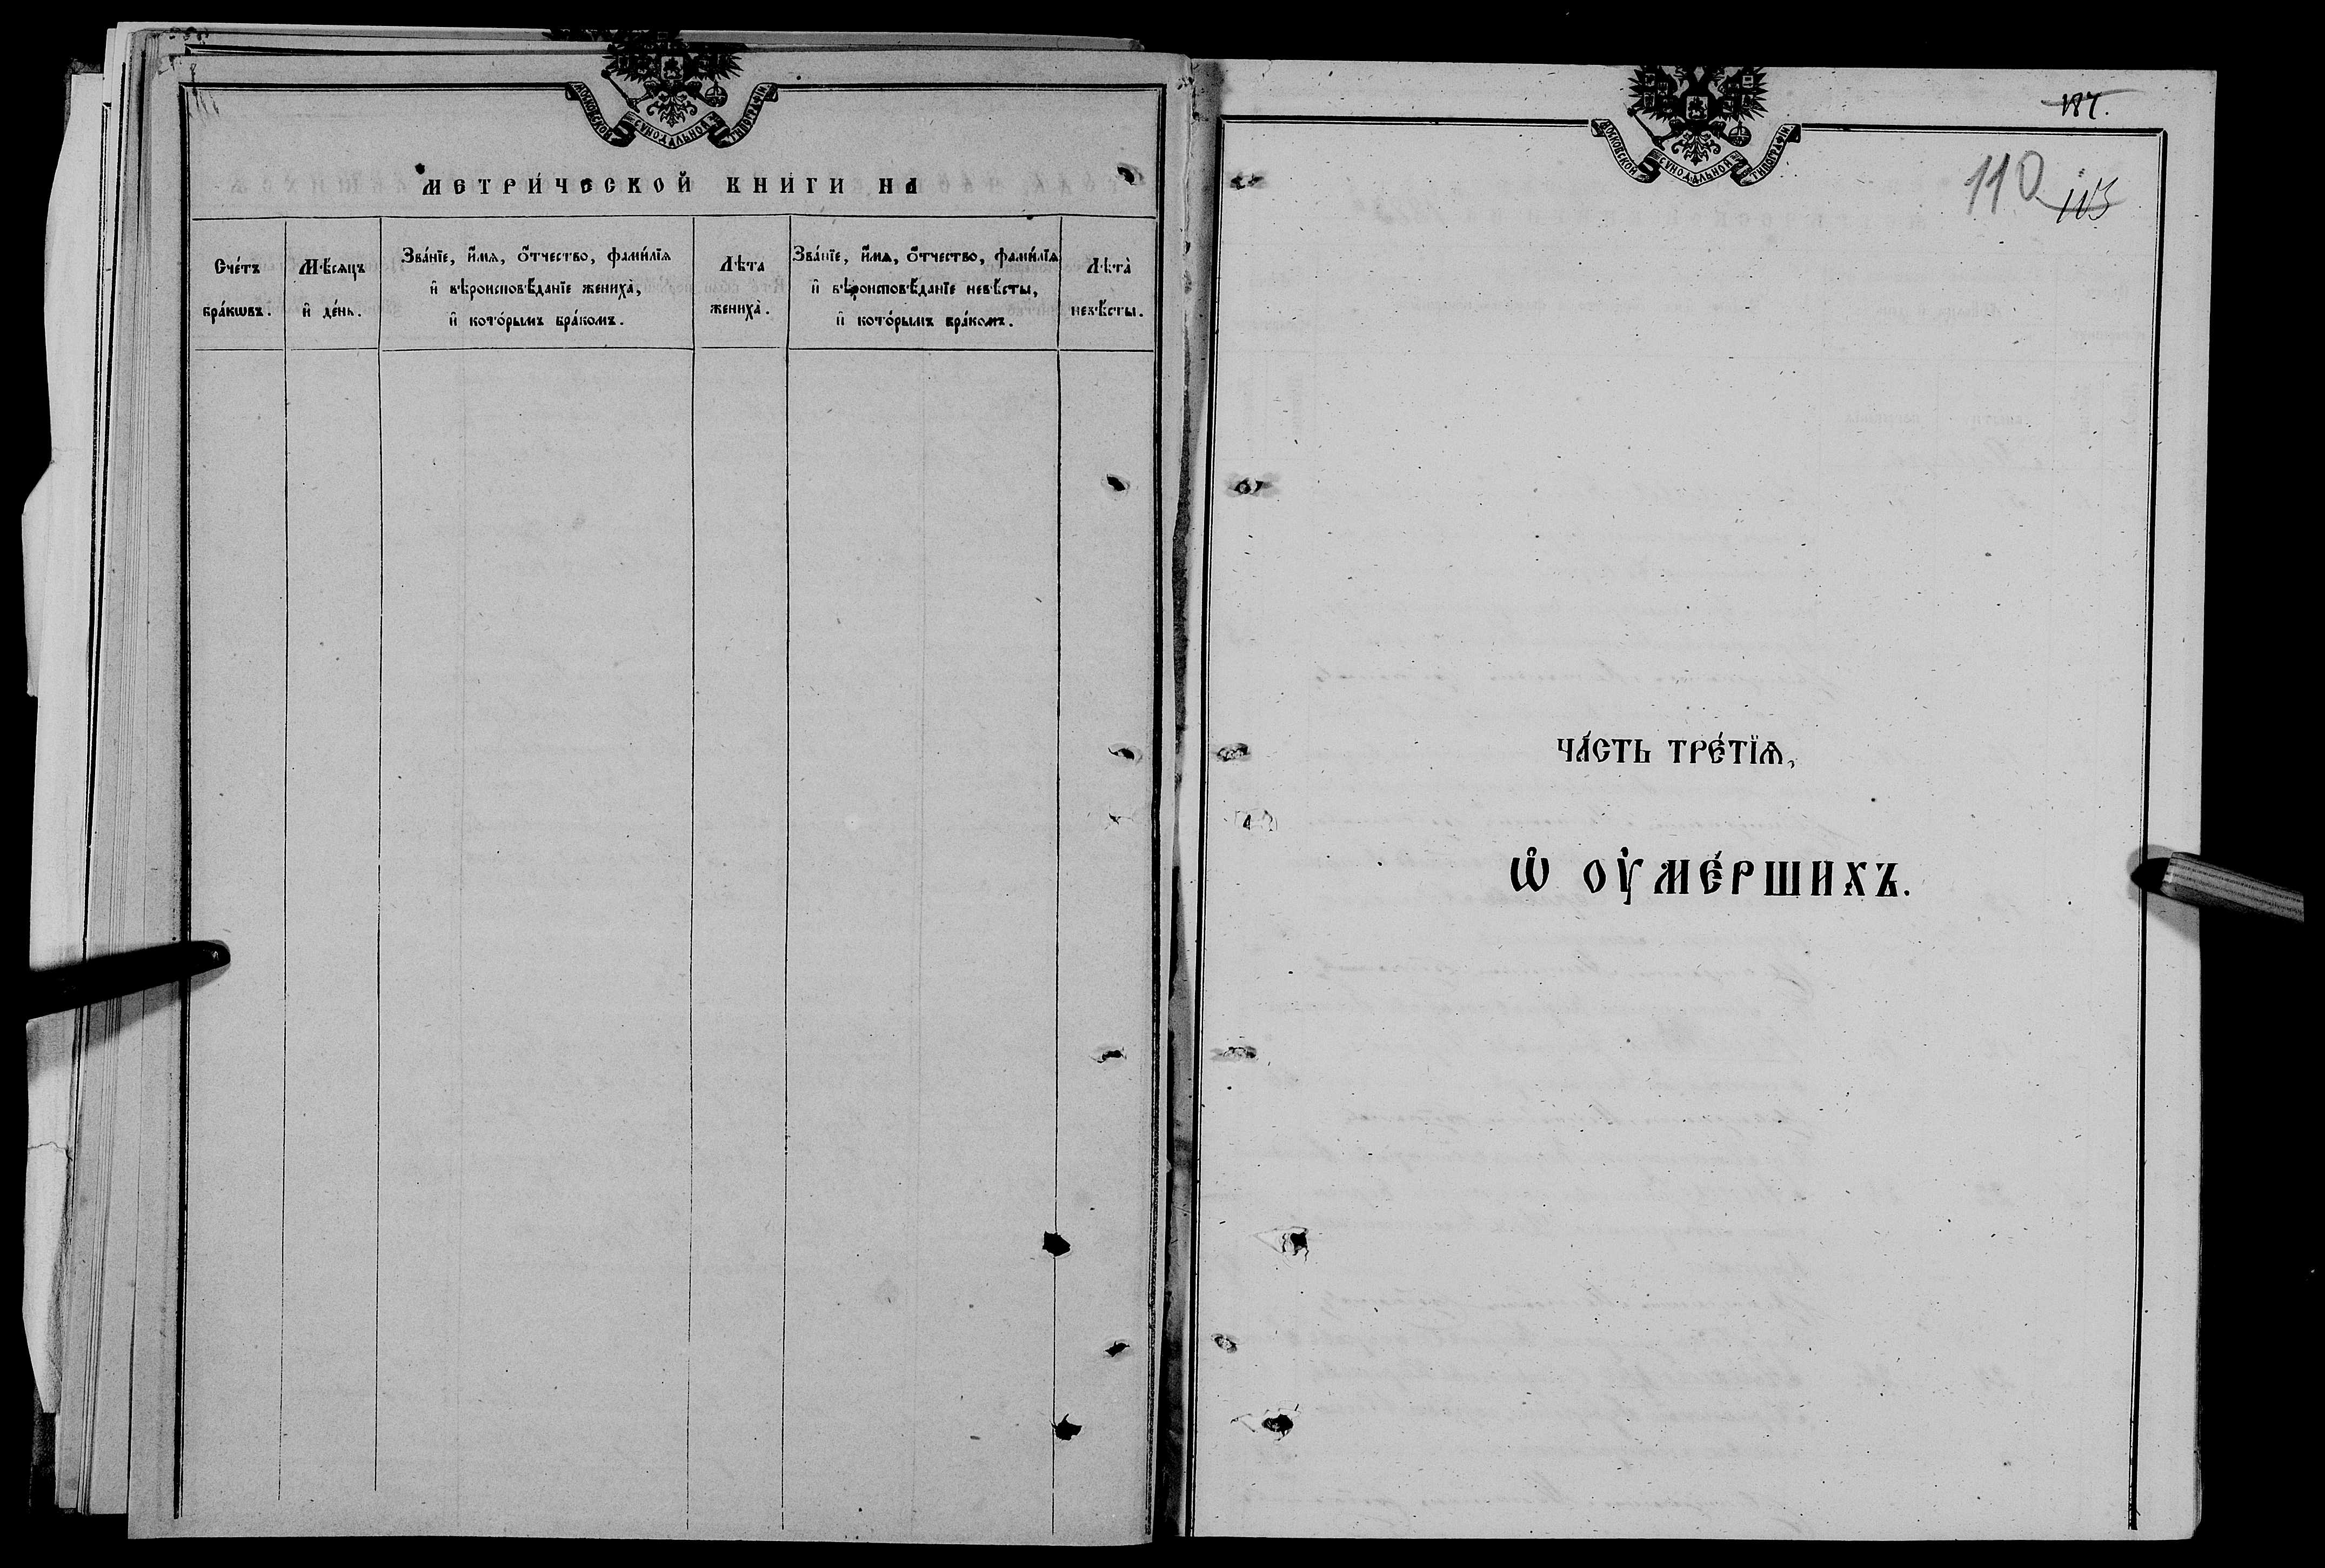 МОСКОВСКОЙ СѴНОДАЛЬНОЙ ТИПОГРАФІИ
МЕТРИ́ЧЕСКОЙ КНИГИ НА
Сче́тъ бра́кѡвъ.
Мѣ́сяцъ и҆ де́нь.
Зва́нїе, и҆́мѧ, ѻ҆́тчество, фамилі́ѧ
и҆ вѣроисповѣ́данїе жениха̀,
и҆ кото́рымъ бра́комъ.
Лѣ́та жениха̀.
Зва́нїе, и҆́мѧ, ѻ҆́тчество, фамилі́ѧ
и҆ вѣроисповѣ́данїе невѣ́сты,
и҆ кото́рымъ бра́комъ.
Лѣта̀ невѣ́сты.
МОСКОВСКОЙ СѴНОДАЛЬНОЙ ТИПОГРАФІИ
187.
110
113
ЧА́СТЬ ТРЕ́ТЇѦ,
Ѡ҆ ОУ҆МЕ́РШИХЪ.